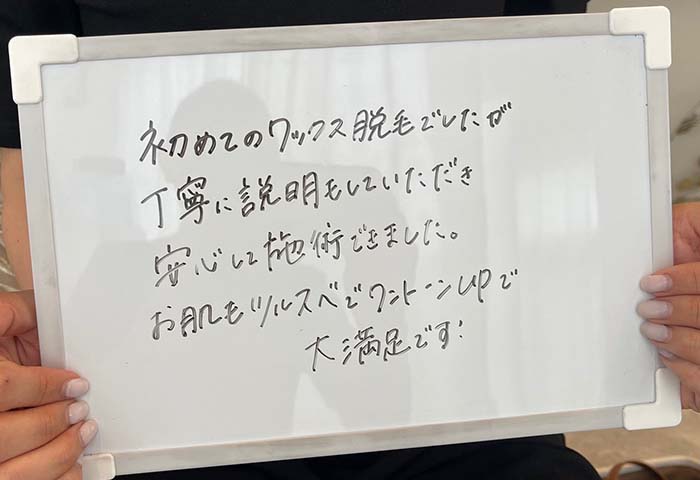 初めてのワックス脱毛でしたが
丁寧に説明もしていただき
安心して施術できました。
お肌もツルスベでワントーンUPで
大満足です!